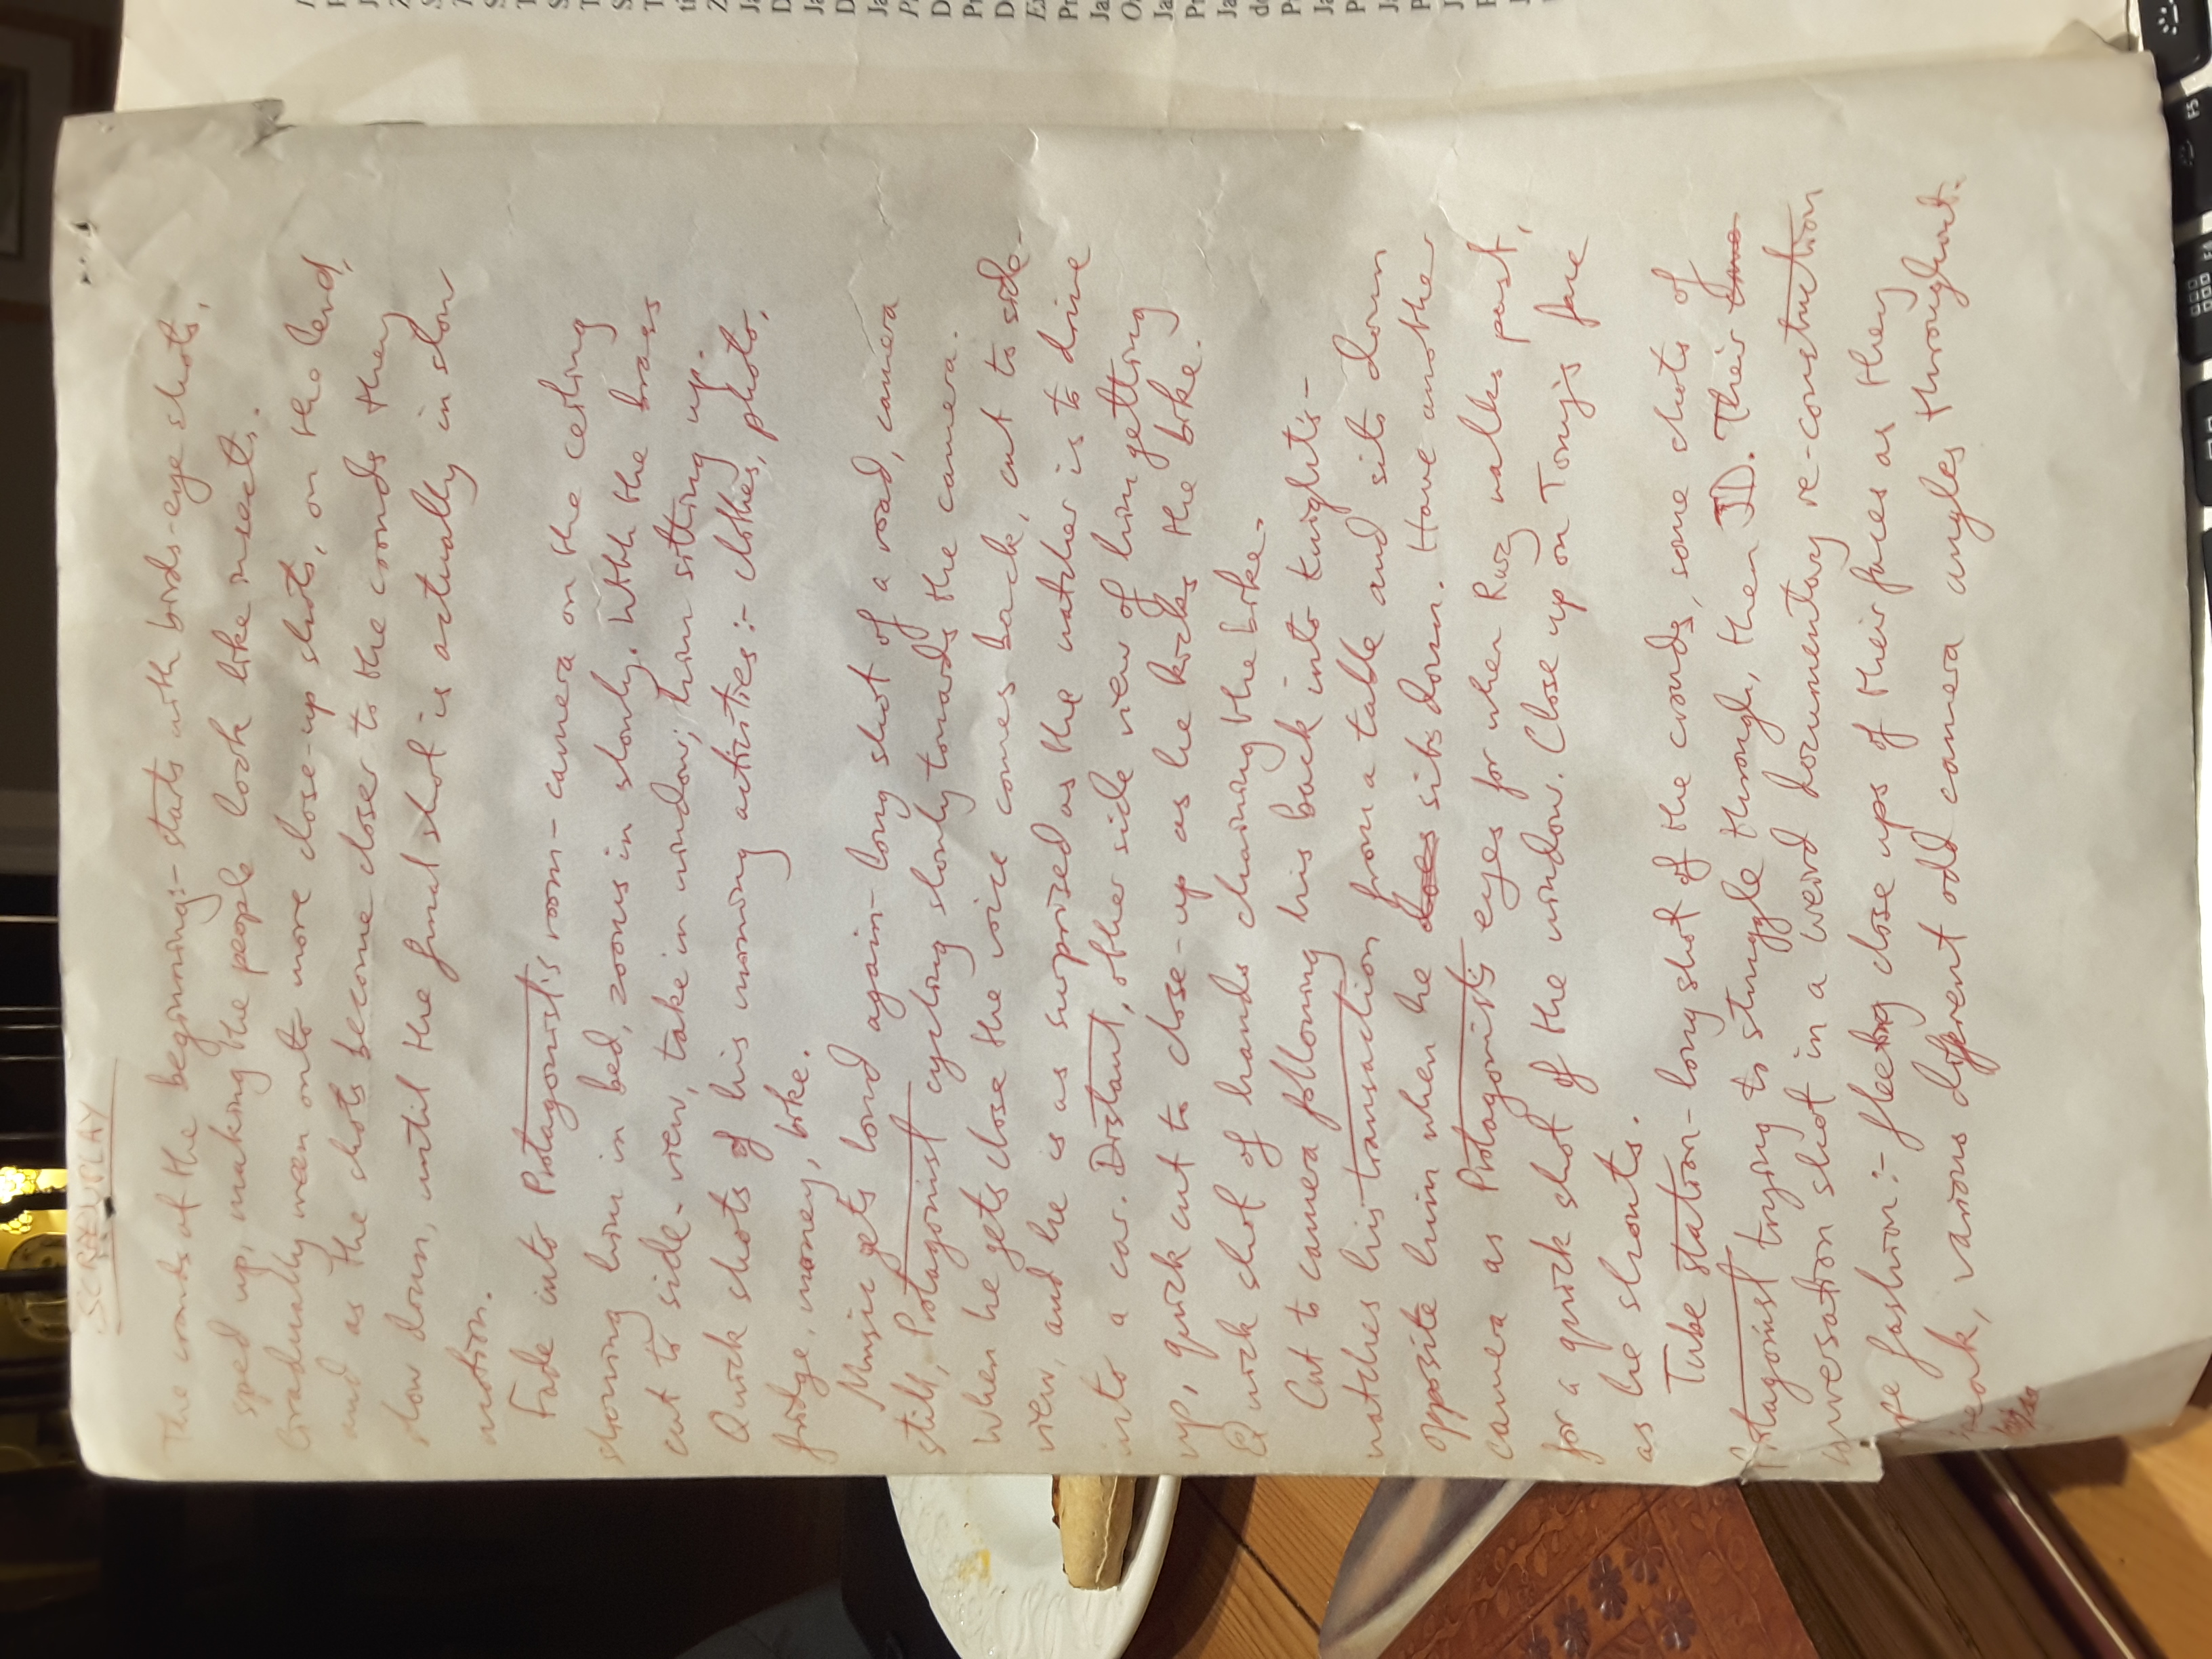 SCREENPLAY
The crowds at the beginning:- starts with birds-eye shots,
sped up, making the people look like insects.
Gradually ween onto more close-up shots, on the level,
and as the shots become closer to the crowds they
slow down, until the final shot is actually in slow
motion.
Fade into Protagonist's room - camera on the ceiling
showing him in bed, zooms in slowly. With the brass
cut to side-view, take in window; him sitting up.
Quick shots of his morning activities:- clothes, photo,
fridge, money, bike.
Music gets loud again - long shot of a road, camera
still, Protagonist cycling slowly towards the camera.
When he gets close the voice comes back, cut to side-
view, and he is as surprised as the watcher is to drive
into a car. Distant, other side view of him getting
up, quick cut to close-up as he kicks the bike.
Quick shot of hands chaining the bike.
Cut to camera following his back into Knight's -
watches his transaction from a table and sits down
opposite him when he does sits down. Have another
camera as Protagonist's eyes for when Roz walks past,
for a quick shot of the window. Close up on Tony's face
as he shouts.
Tube station - long shot of the crowds, some shots of
Protagonist trying to struggle through, then JD. Their
conversation shot in a weird documentary re-constuction
type fashion:- fleeting close ups of their faces as they
speak, various different odd camera angles throughout.
F5
F4